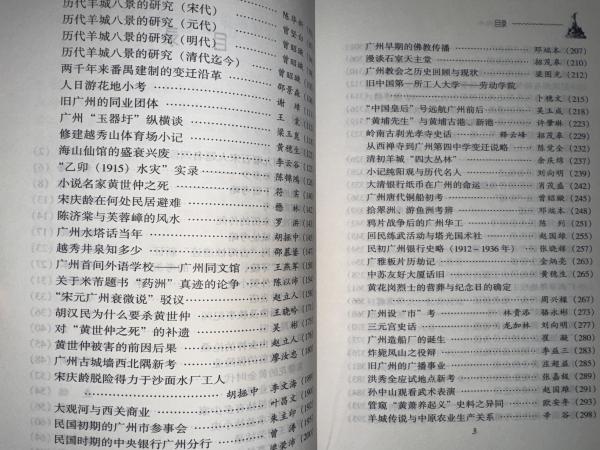 历代羊城八景的研究（宋代）
历代羊城八景的研究（元代） 曾昭璇
历代羊城八景的研究（明代） 曾昭璇
历代羊城八景的研究（清代迄今） 曾昭璇
两千年来番禺建制的变迁沿革 曾昭璇
人日游花地小考 邵景淼
旧广州的同业团体 谢璋
广州“玉器圩”纵横谈 王
修建越秀山体育场小记 梁玉
海山仙馆的盛衰兴废 黄穗生
“乙卯（1915）水灾”实录 李云谷
小说名家黄世仲之死 陈锦鸿
宋庆龄在何处民居避难 符实
陈济棠与芙蓉嶂的风水
广州水塔话当年 罗
越秀井泉知多少 胡振中
广州首间外语学校——广州同文馆 邵慕馨
关于米芾题书“药洲”真迹的论争 王燕军
“宋元广州衰微说”驳议 陈以沛
胡汉民为什么要杀黄世仲 赵立人
对“黄世仲之死”的补遗 王晓吟
黄世仲被害的前因后果 吴彬
广州古城墙西北隅新考 赵立人
宋庆龄脱险得力于沙面水厂工人 廖汝忠
胡振中 李文涛
大观河与西关商业 叶昌文
民国初期的广州市参事会 朱立印
民国时期的中央银行广州分行 曾涛
梁荣沛
目录
广州早期的佛教传播 邓端本（207）
漫谈石室天主堂 招茂春（210）
广州教会之历史回顾与现状 梁国光（212）
旧中国第一所工人大学——劳动学院
卜穗文（215）
“中国皇后”号远航广州前后 吴玉成（217）
“黄埔先生”与黄埔古港、新港 许肇琳（221）
岭南古刹光孝寺史话 释云峰 招茂春（224）
从西禅寺到广州第四中学变迁说略 陈党全（227）
清初羊城“四大丛林” 余庆绵（230）
小记纯阳观与历代名人 刘向明（233）
大清银行纸币在广州的命运 肖茂盛（236）
广州唐代铜船初考 曾昭璇（239）
拾翠洲、游鱼洲考辨 邓端本（242）
鸦片战争后的广州华工 陈列（245）
回民练武活动与塔光国术社 赵国雄（249）
民初广州银行史略（1912－1936年） 张晓辉（252）
广雅板片历劫记 金炳亮（255）
中苏友好大厦话旧 黄穗生（258）
黄花岗烈士的营葬与纪念日的确定
周兴樑（262）
广州设“市”考 林贵添 骆永彬（265）
三元宫史话 龙加林 刘向明（268）
广州造船厂的诞生 崔凝（271）
炸毙凤山之役辩 李益三（274）
旧广州的广播事业 庄超盛（277）
洪秀全应试地点新考 张嘉极（280）
孙中山观看武术表演 赵国雄（283）
管窥“黄萧养起义”史料之异同 欧安年（287）
羊城传说与中原农业生产关系 辛谷（298）
3